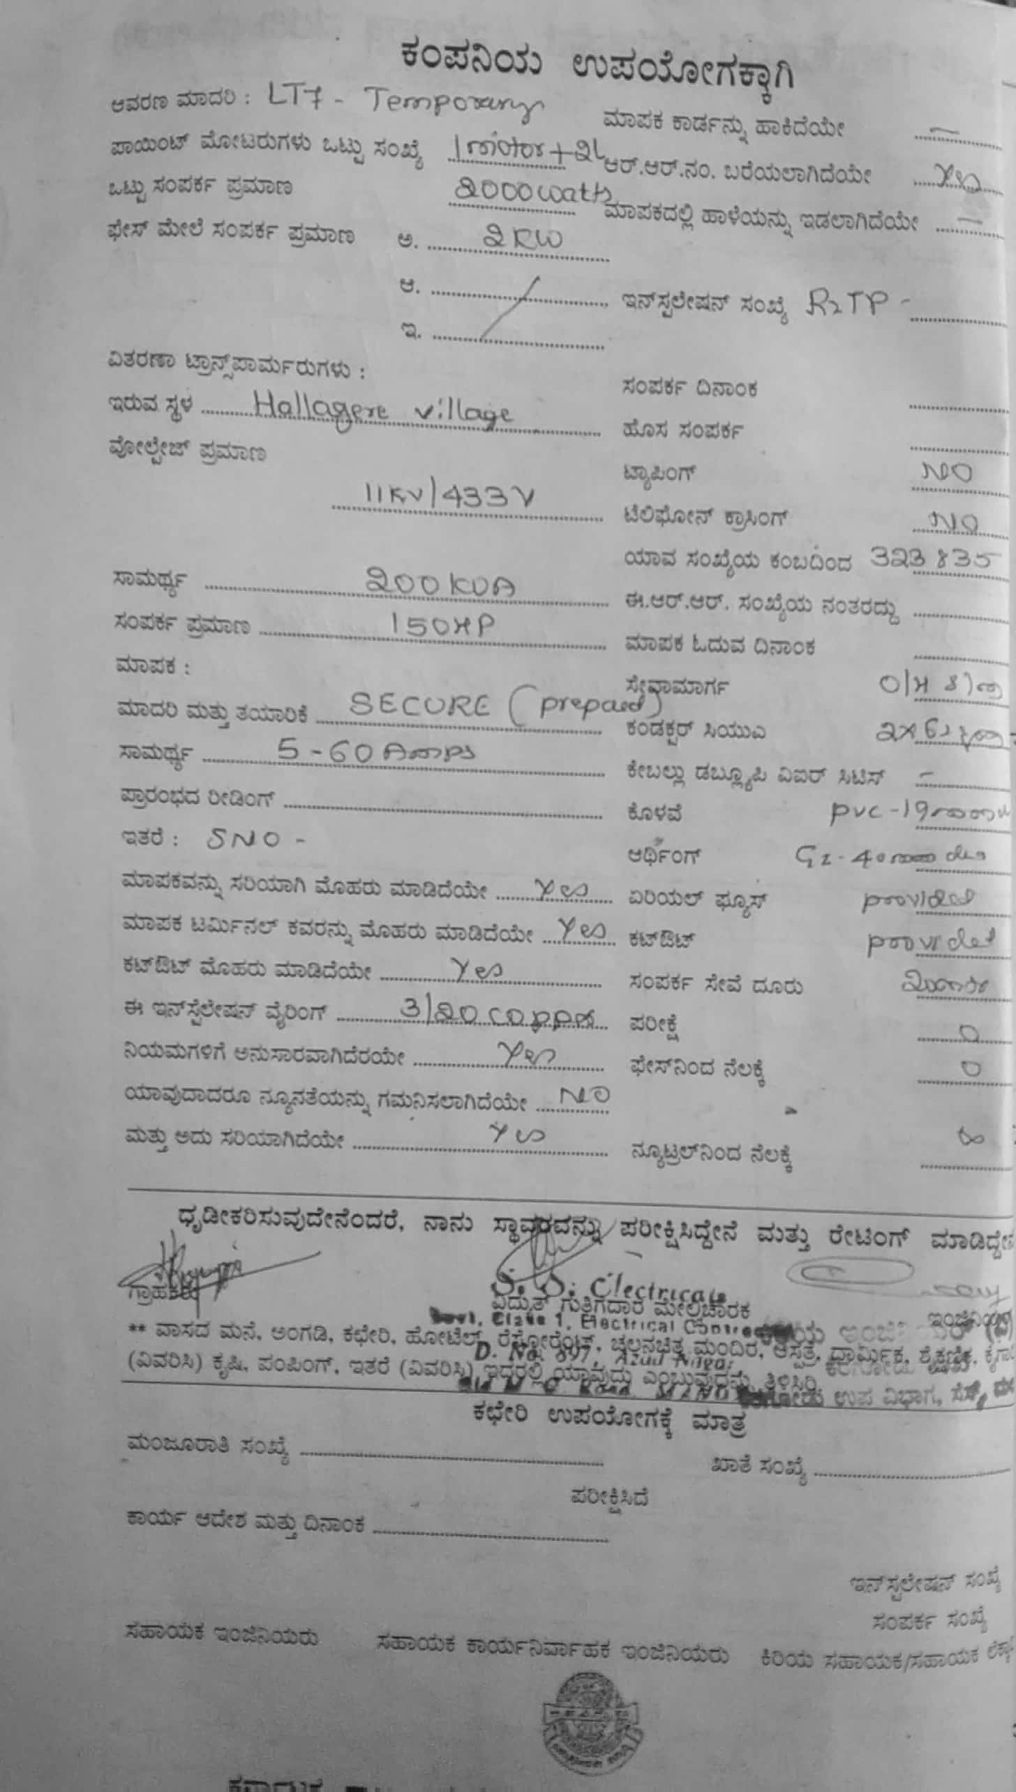 ಕಂಪನಿಯ ಉಪಯೋಗಕ್ಕಾಗಿ
ಆವರಣ ಮಾದರಿ : LT7 - Temporary
ಮಾಪಕ ಕಾರ್ಡನ್ನು ಹಾಕಿದೆಯೇ —
ಪಾಯಿಂಟ್ ಮೋಟರುಗಳು ಒಟ್ಟು ಸಂಖ್ಯೆ 1motor+2L
ಆರ್.ಆರ್.ನಂ. ಬರೆಯಲಾಗಿದೆಯೇ Yes
ಒಟ್ಟು ಸಂಪರ್ಕ ಪ್ರಮಾಣ 2000watts
ಮಾಪಕದಲ್ಲಿ ಹಾಳೆಯನ್ನು ಇಡಲಾಗಿದೆಯೇ —
ಫೇಸ್ ಮೇಲೆ ಸಂಪರ್ಕ ಪ್ರಮಾಣ ಅ. 2KW
ಆ.
ಇನ್‌ಸ್ಪಲೇಷನ್ ಸಂಖ್ಯೆ R2TP -
ಇ.
ವಿತರಣಾ ಟ್ರಾನ್ಸ್‌ಪಾರ್ಮರುಗಳು :
ಸಂಪರ್ಕ ದಿನಾಂಕ
ಇರುವ ಸ್ಥಳ Hallagere village
ಹೊಸ ಸಂಪರ್ಕ
ವೋಲ್ಟೇಜ್ ಪ್ರಮಾಣ
11KV/433V
ಟ್ಯಾಪಿಂಗ್ NO
ಟೆಲಿಫೋನ್ ಕ್ರಾಸಿಂಗ್ NO
ಯಾವ ಸಂಖ್ಯೆಯ ಕಂಬದಿಂದ 323835
ಸಾಮರ್ಥ್ಯ 200KVA
ಈ.ಆರ್.ಆರ್. ಸಂಖ್ಯೆಯ ನಂತರದ್ದು
ಸಂಪರ್ಕ ಪ್ರಮಾಣ 150HP
ಮಾಪಕ ಓದುವ ದಿನಾಂಕ
ಮಾಪಕ :
ಸೇವಾಮಾರ್ಗ O/H
ಮಾದರಿ ಮತ್ತು ತಯಾರಿಕೆ SECURE (prepaid)
ಕಂಡಕ್ಟರ್ ಸಿಯುಎ
ಸಾಮರ್ಥ್ಯ 5-60Amps
ಕೇಬಲ್ಲು ಡಬ್ಲ್ಯೂಪಿ ವಿಐರ್ ಸಿಟಿಸ್ —
ಪ್ರಾರಂಭದ ರೀಡಿಂಗ್
ಕೊಳವೆ PVC-19mm
ಇತರೆ : SNO -
ಆರ್ಥಿಂಗ್ GI-40mm dia
ಮಾಪಕವನ್ನು ಸರಿಯಾಗಿ ಮೊಹರು ಮಾಡಿದೆಯೇ Yes
ಏರಿಯಲ್ ಫ್ಯೂಸ್ provided
ಮಾಪಕ ಟರ್ಮಿನಲ್ ಕವರನ್ನು ಮೊಹರು ಮಾಡಿದೆಯೇ Yes
ಕಟ್‌ಔಟ್ provided
ಕಟ್‌ಔಟ್ ಮೊಹರು ಮಾಡಿದೆಯೇ Yes
ಸಂಪರ್ಕ ಸೇವೆ ದೂರು
ಈ ಇನ್‌ಸ್ಪೆಲೇಷನ್ ವೈರಿಂಗ್ 3/20 copper
ಪರೀಕ್ಷೆ 0
ನಿಯಮಗಳಿಗೆ ಅನುಸಾರವಾಗಿದೆರಯೇ Yes
ಫೇಸ್‌ನಿಂದ ನೆಲಕ್ಕೆ 0
ಯಾವುದಾದರೂ ನ್ಯೂನತೆಯನ್ನು ಗಮನಿಸಲಾಗಿದೆಯೇ NO
ಮತ್ತು ಅದು ಸರಿಯಾಗಿದೆಯೇ Yes
ನ್ಯೂಟ್ರಲ್‌ನಿಂದ ನೆಲಕ್ಕೆ ∞
ಧೃಡೀಕರಿಸುವುದೇನೆಂದರೆ, ನಾನು ಸ್ಥಾವರವನ್ನು ಪರೀಕ್ಷಿಸಿದ್ದೇನೆ ಮತ್ತು ರೇಟಿಂಗ್ ಮಾಡಿದ್ದೇನೆ
ಗ್ರಾಹಕರು
Electricals
ವಿದ್ಯುತ್ ಗುತ್ತಿಗೆದಾರ ಮೇಲ್ವಿಚಾರಕ
Govt. Class 1, Electrical
** ವಾಸದ ಮನೆ, ಅಂಗಡಿ, ಕಛೇರಿ, ಹೋಟೆಲ್, ರೆಸ್ಟೋರೆಂಟ್, ಚಲನಚಿತ್ರ ಮಂದಿರ, ಆಸ್ಪತ್ರೆ, ಧಾರ್ಮಿಕ, ಶೈಕ್ಷಣಿಕ,
D. No. 897, Azad Nagar
(ವಿವರಿಸಿ) ಕೃಷಿ, ಪಂಪಿಂಗ್, ಇತರೆ (ವಿವರಿಸಿ) ಇದರಲ್ಲಿ ಯಾವುದು ಎಂಬುವುದನ್ನು ತಿಳಿಸಿರಿ
ಉಪ ವಿಭಾಗ,
ಕಛೇರಿ ಉಪಯೋಗಕ್ಕೆ ಮಾತ್ರ
ಮಂಜೂರಾತಿ ಸಂಖ್ಯೆ
ಖಾತೆ ಸಂಖ್ಯೆ
ಪರೀಕ್ಷಿಸಿದೆ
ಕಾರ್ಯ ಆದೇಶ ಮತ್ತು ದಿನಾಂಕ
ಇನ್‌ಸ್ಪಲೇಷನ್ ಸಂಖ್ಯೆ
ಸಂಪರ್ಕ ಸಂಖ್ಯೆ
ಸಹಾಯಕ ಇಂಜಿನಿಯರು ಸಹಾಯಕ ಕಾರ್ಯನಿರ್ವಾಹಕ ಇಂಜಿನಿಯರು ಕಿರಿಯ ಸಹಾಯಕ/ಸಹಾಯಕ